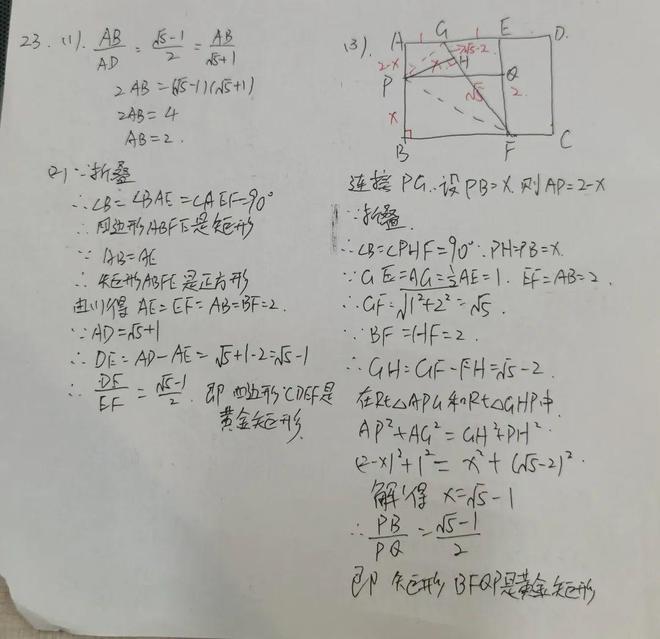 23. (1). AB/AD = (√5-1)/2 = AB/(√5+1)
2AB = (√5-1)(√5+1)
2AB = 4
AB = 2.
(2) ∵ 折叠
∴ ∠B = ∠BAE = ∠AEF = 90°
∴ 四边形ABFE是矩形
∵ AB = AE
∴ 矩形ABFE是正方形
由(1)得 AE = EF = AB = BF = 2.
∵ AD = √5+1
∴ DE = AD - AE = √5+1-2 = √5-1
∴ DE/EF = (√5-1)/2. 即四边形CDEF是
黄金矩形.
(3).
A G E D.
1 1
√5-2
2-x x H
P Q
√5 2
x
B F C
连接PG. 设PB = x. 则AP = 2-x
∵ 折叠.
∴ ∠B = ∠PHF = 90°. PH = PB = x.
∵ GE = AG = ½AE = 1. EF = AB = 2.
∴ GF = √(1²+2²) = √5.
∵ BF = HF = 2.
∴ GH = GF - FH = √5-2.
在Rt△APG和Rt△GHP中.
AP² + AG² = GH² + PH².
(2-x)² + 1² = x² + (√5-2)².
解得 x = √5-1
∴ PB/PQ = (√5-1)/2
即 矩形BFQP是黄金矩形